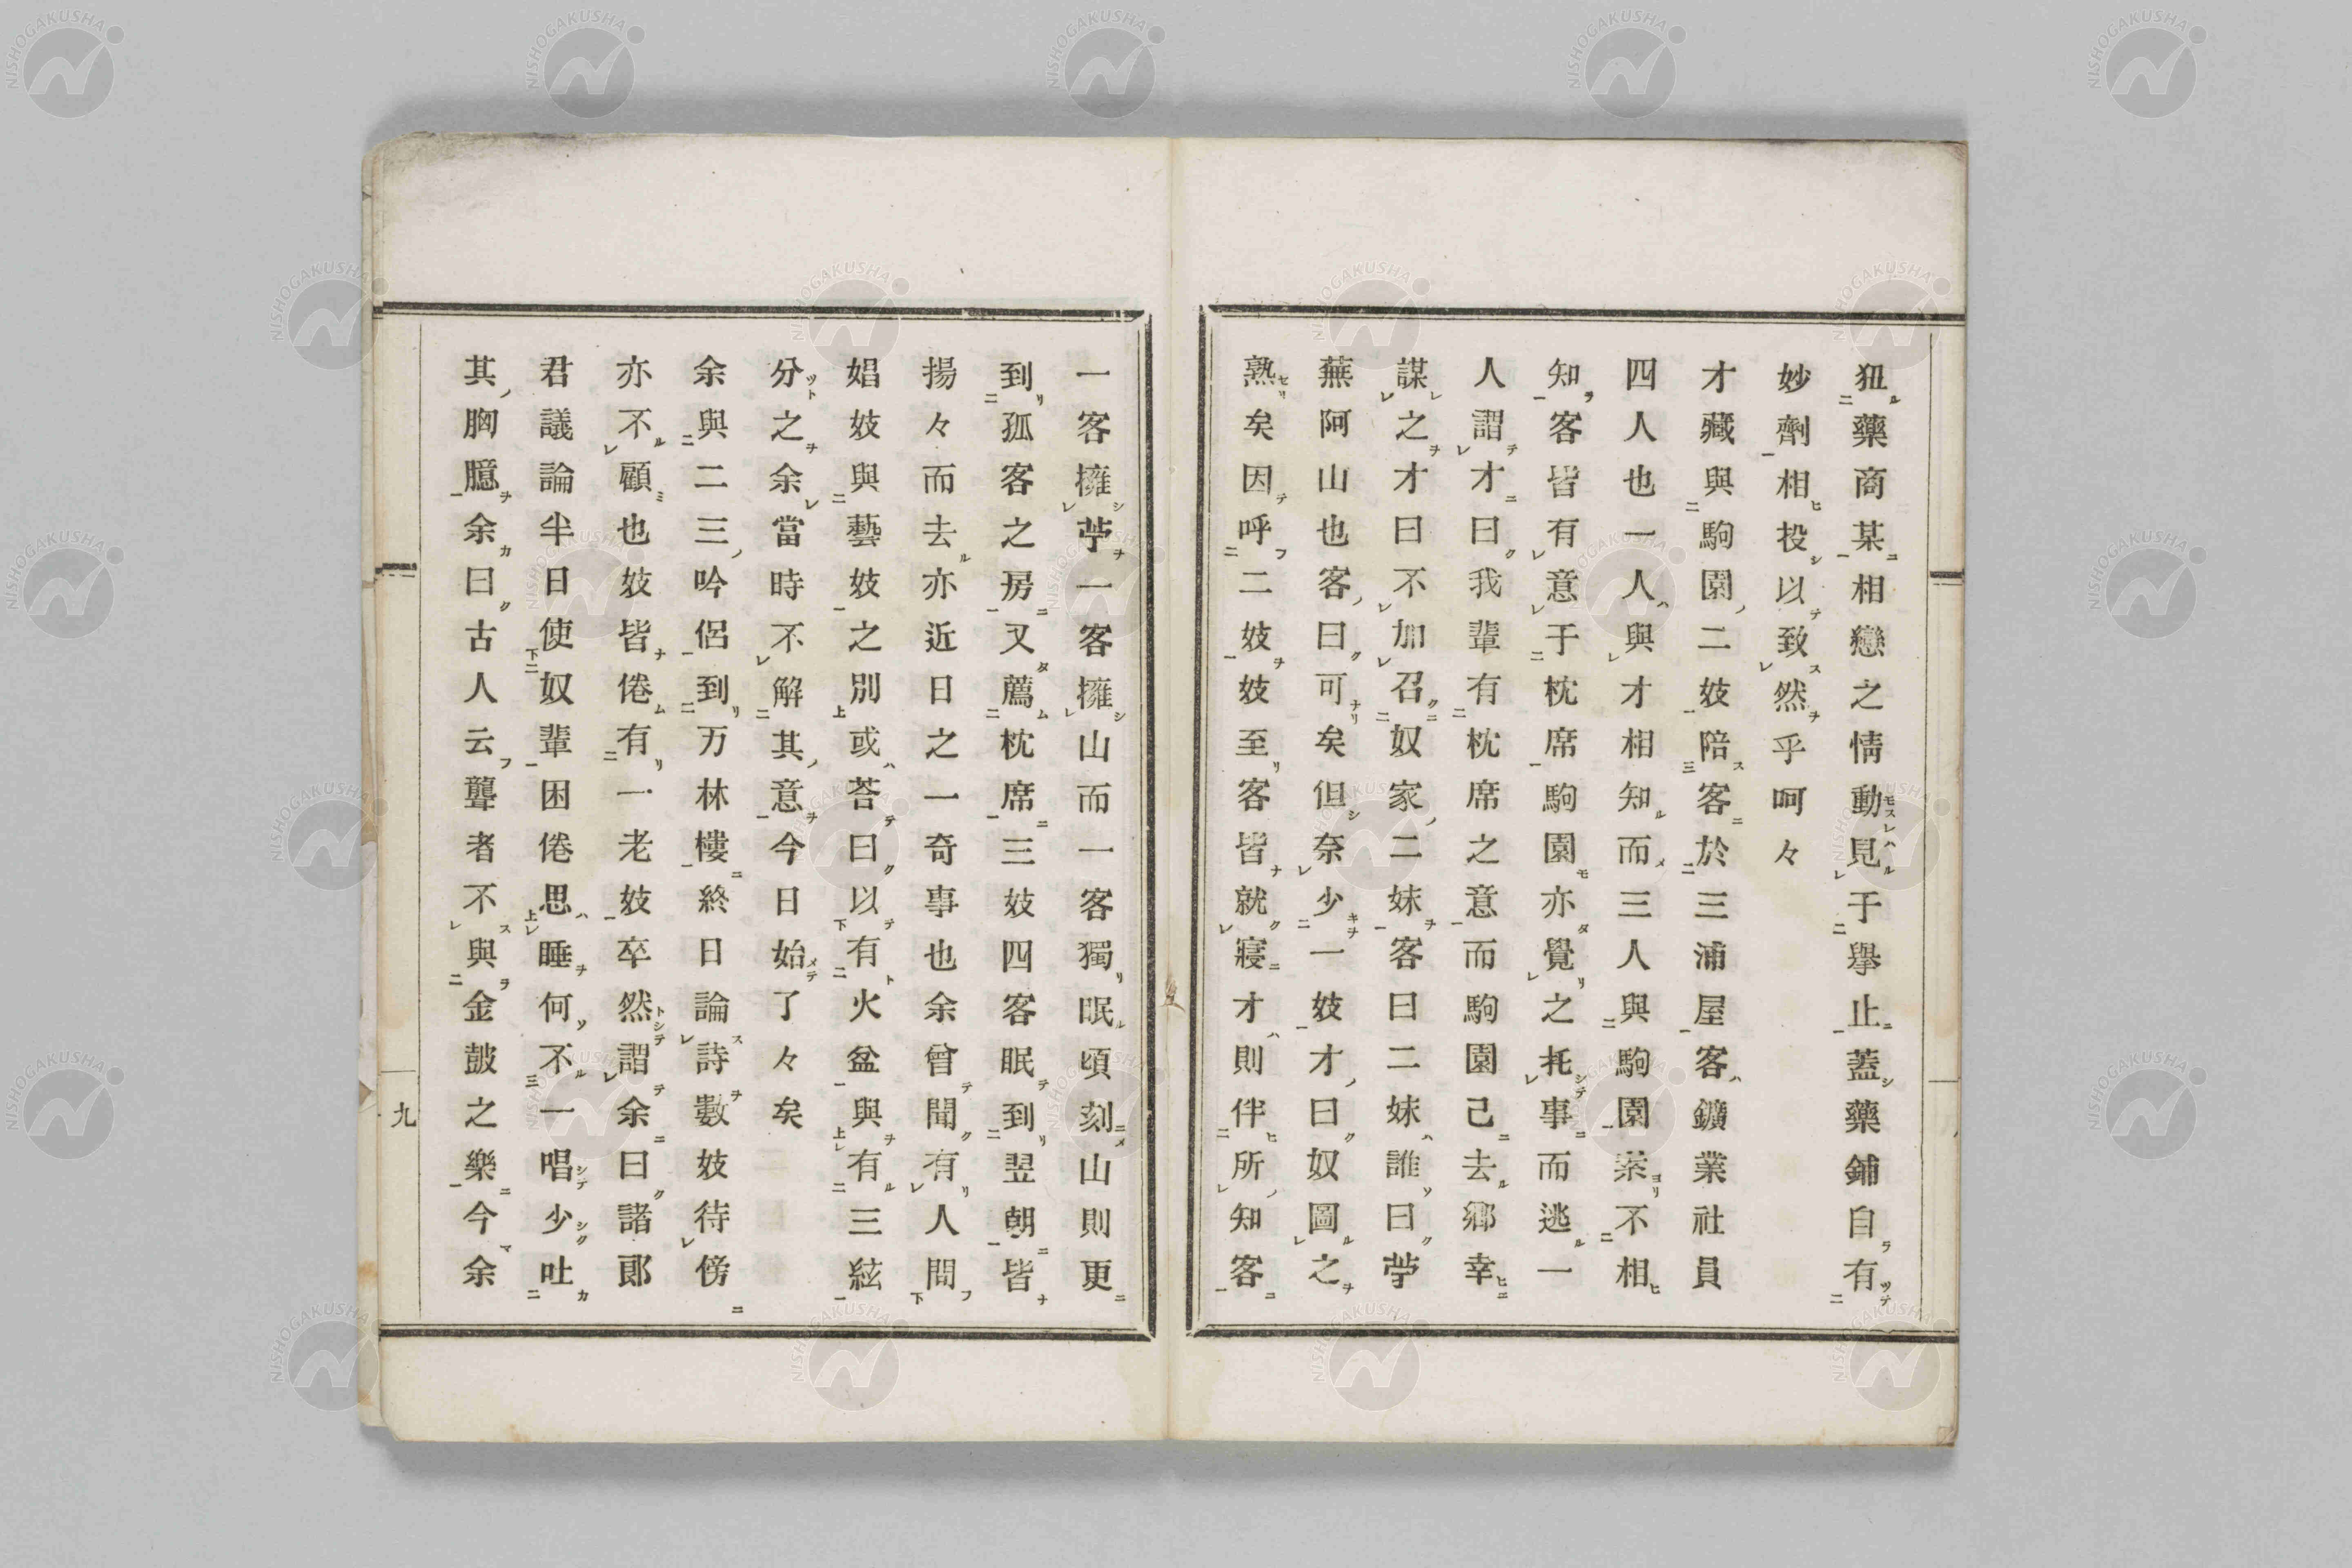 狃藥商某相戀之情動見于擧止蓋藥鋪自有
妙劑相投以致然乎呵々
才藏與駒園二妓陪客於三浦屋客鑛業社員
四人也一人與才相知而三人與駒園素不相
知客皆有意于枕席駒園亦覺之托事而逃一
人謂才曰我輩有枕席之意而駒園己去鄉幸
謀之才曰不加召奴家二妹客曰二妹誰曰苧
蕪阿山也客曰可矣但奈少一妓才曰奴圖之
熟矣因呼二妓妓至客皆就寢才則伴所知客
一客擁苧一客擁山而一客獨眠頃刻山則更
到孤客之房又薦枕席三妓四客眠到翌朝皆
揚々而去亦近日之一奇事也余曾聞有人問
娼妓與藝妓之別或荅曰以有火盆與有三絃
分之余當時不解其意今日始了々矣
余與二三吟侶到万林樓終日論詩數妓待傍
亦不顧也妓皆倦有一老妓卒然謂余曰諸郞
君議論半日使奴輩困倦思睡何不一唱少吐
其胸臆余曰古人云聾者不與金皷之樂今余
九
NISHOGAKUSHA